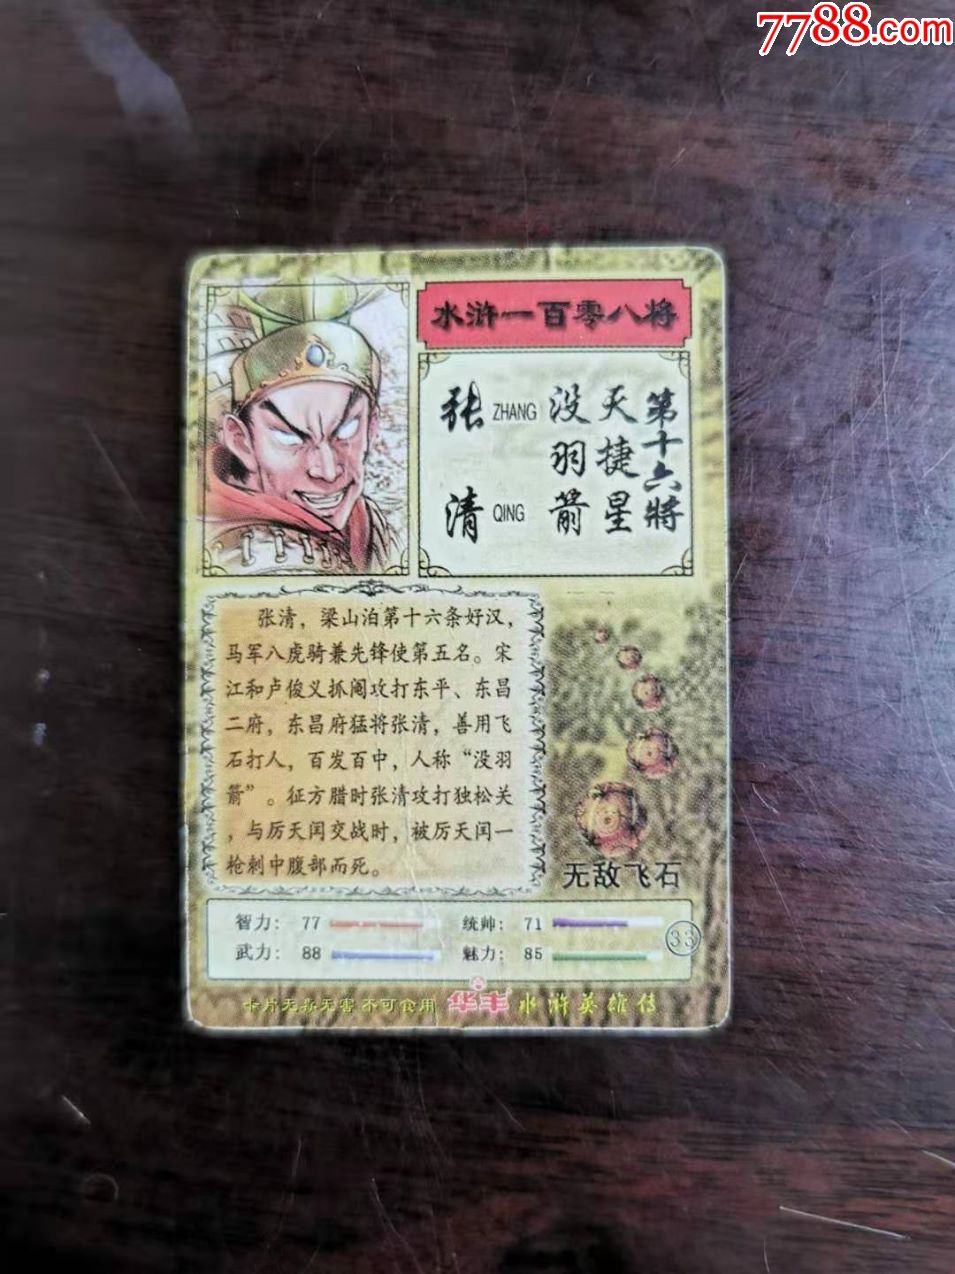 7788.com
水浒一百零八将
第十六將
天捷星
没羽箭
张 ZHANG
清 QING
张清，梁山泊第十六条好汉，
马军八虎骑兼先锋使第五名。宋
江和卢俊义抓阄攻打东平、东昌
二府，东昌府猛将张清，善用飞
石打人，百发百中，人称“没羽
箭”。征方腊时张清攻打独松关
，与厉天闰交战时，被厉天闰一
枪刺中腹部而死。
无敌飞石
智力： 77 统帅： 71
武力： 88 魅力： 85
33
卡片无毒无害 不可食用 华丰 水浒英雄传